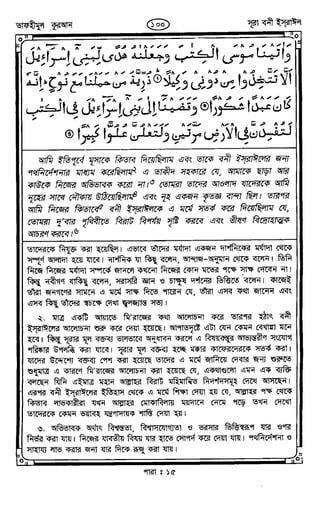 তাফহীমুল কুরআন
১০০
সূরা বনী ইসরাঈল
وَاٰتَيْنَا مُوْسَى الْكِتٰبَ وَجَعَلْنٰهُ هُدًى لِّبَنِيْٓ اِسْرَآءِيْلَ
اَلَّا تَتَّخِذُوْا مِنْ دُوْنِيْ وَكِيْلًا ۞ ذُرِّيَّةَ مَنْ حَمَلْنَا مَعَ نُوْحٍ ؕ اِنَّهٗ
كَانَ عَبْدًا شَكُوْرًا ۞ وَقَضَيْنَآ اِلٰى بَنِيْٓ اِسْرَآءِيْلَ فِي الْكِتٰبِ
لَتُفْسِدُنَّ فِي الْاَرْضِ مَرَّتَيْنِ وَلَتَعْلُنَّ عُلُوًّا كَبِيْرًا ۞
আমি ইতিপূর্বে মূসাকে কিতাব দিয়েছিলাম এবং তাকে বনী ইসরাঈলের জন্য
পথনির্দেশনার মাধ্যম করেছিলাম২ এ তাগিদ সহকারে যে, আমাকে ছাড়া আর
কাউকে নিজের অভিভাবক করো না।৩ তোমরা তাদের আওলাদ যাদেরকে আমি
নূহের সাথে নৌকায় উঠিয়েছিলাম৪ এবং নূহ একজন কৃতজ্ঞ বান্দা ছিল। তারপর
আমি নিজের কিতাবে৫ বনী ইসরাঈলকে এ মর্মে সতর্ক করে দিয়েছিলাম যে,
তোমরা দু'বার পৃথিবীতে বিরাট বিপর্যয় সৃষ্টি করবে এবং ভীষণ বিদ্রোহাত্মক
আচরণ করবে।৬
তাদেরকে নিযুক্ত করা হয়েছিল। এভাবে তাঁদের মর্যাদা একজন দার্শনিকের মর্যাদা থেকে
সম্পূর্ণ আলাদা হয়ে যাবে। দার্শনিক যা কিছু বলেন, আন্দাজ-অনুমান থেকে বলেন। তিনি
নিজে নিজের মর্যাদা সম্পর্কে জানলে কখনো নিজের কোন মতের পক্ষে সাক্ষ দেবেন না।
কিন্তু নবীগণ যাকিছু বলেন, সরাসরি জ্ঞান ও চাক্ষুষ দর্শনের ভিত্তিতে বলেন। কাজেই
তাঁরা জনগণের সামনে এ মর্মে সাক্ষ দিতে পারেন যে, তাঁরা এসব কথা জানেন এবং
এসব কিছু তাঁদের স্বচক্ষে দেখা জ্বলজ্যান্ত সত্য।
২. মাত্র একটি আয়াতে মি'রাজের কথা আলোচনা করে তারপর হঠাৎ বনী
ইসরাঈলের আলোচনা শুরু করে দেয়া হয়েছে। আপাতদৃষ্টে এটা যেন কেমন বেখাপ্পা মনে
হবে। কিন্তু সূরার মূল বক্তব্য ভালোভাবে অনুধাবন করলে এ বিষয়বস্তুর আভ্যন্তরীণ সংযোগ
পরিষ্কার উপলব্ধি করা যাবে। সূরার মূল বক্তব্য হচ্ছে মক্কার কাফেরদেরকে সতর্ক করা।
যাদের উদ্দেশ্যে বক্তব্য পেশ করা হয়েছে তাদের এ মর্মে জানিয়ে দেবার জন্য শুরুতে
শুধুমাত্র এ কারণে মি'রাজের আলোচনা করা হয়েছে যে, একথাগুলো এমন এক ব্যক্তি
বলছেন যিনি এইমাত্র মহান আল্লাহর বিরাট মহিমান্বিত নিদর্শনসমূহ দেখে আসছেন।
এরপর বনী ইসরাঈলের ইতিহাস থেকে এ মর্মে শিক্ষা দেয়া হয় যে, আল্লাহর পক্ষ থেকে
কিতাব লাভকারীরা যখন আল্লাহর মোকাবিলায় ময়দানে নেমে পড়ে তখন দেখো
তাদেরকে কেমন ভয়াবহ যন্ত্রণাদায়ক শাস্তি দেয়া হয়।
৩. অভিভাবক অর্থাৎ বিশ্বস্ততা, বিশ্বাসযোগ্যতা ও ভরসার ভিত্তিস্বরূপ যার ওপর
নির্ভর করা যায়। নিজের যাবতীয় বিষয় যার হাতে সোপর্দ করে দেয়া যায়। পথনির্দেশনা ও
সাহায্য লাভ করার জন্য যার দিকে রুজু করা যায়।
পারা : ১৫